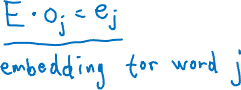 E · oⱼ = eⱼ
embedding for word j